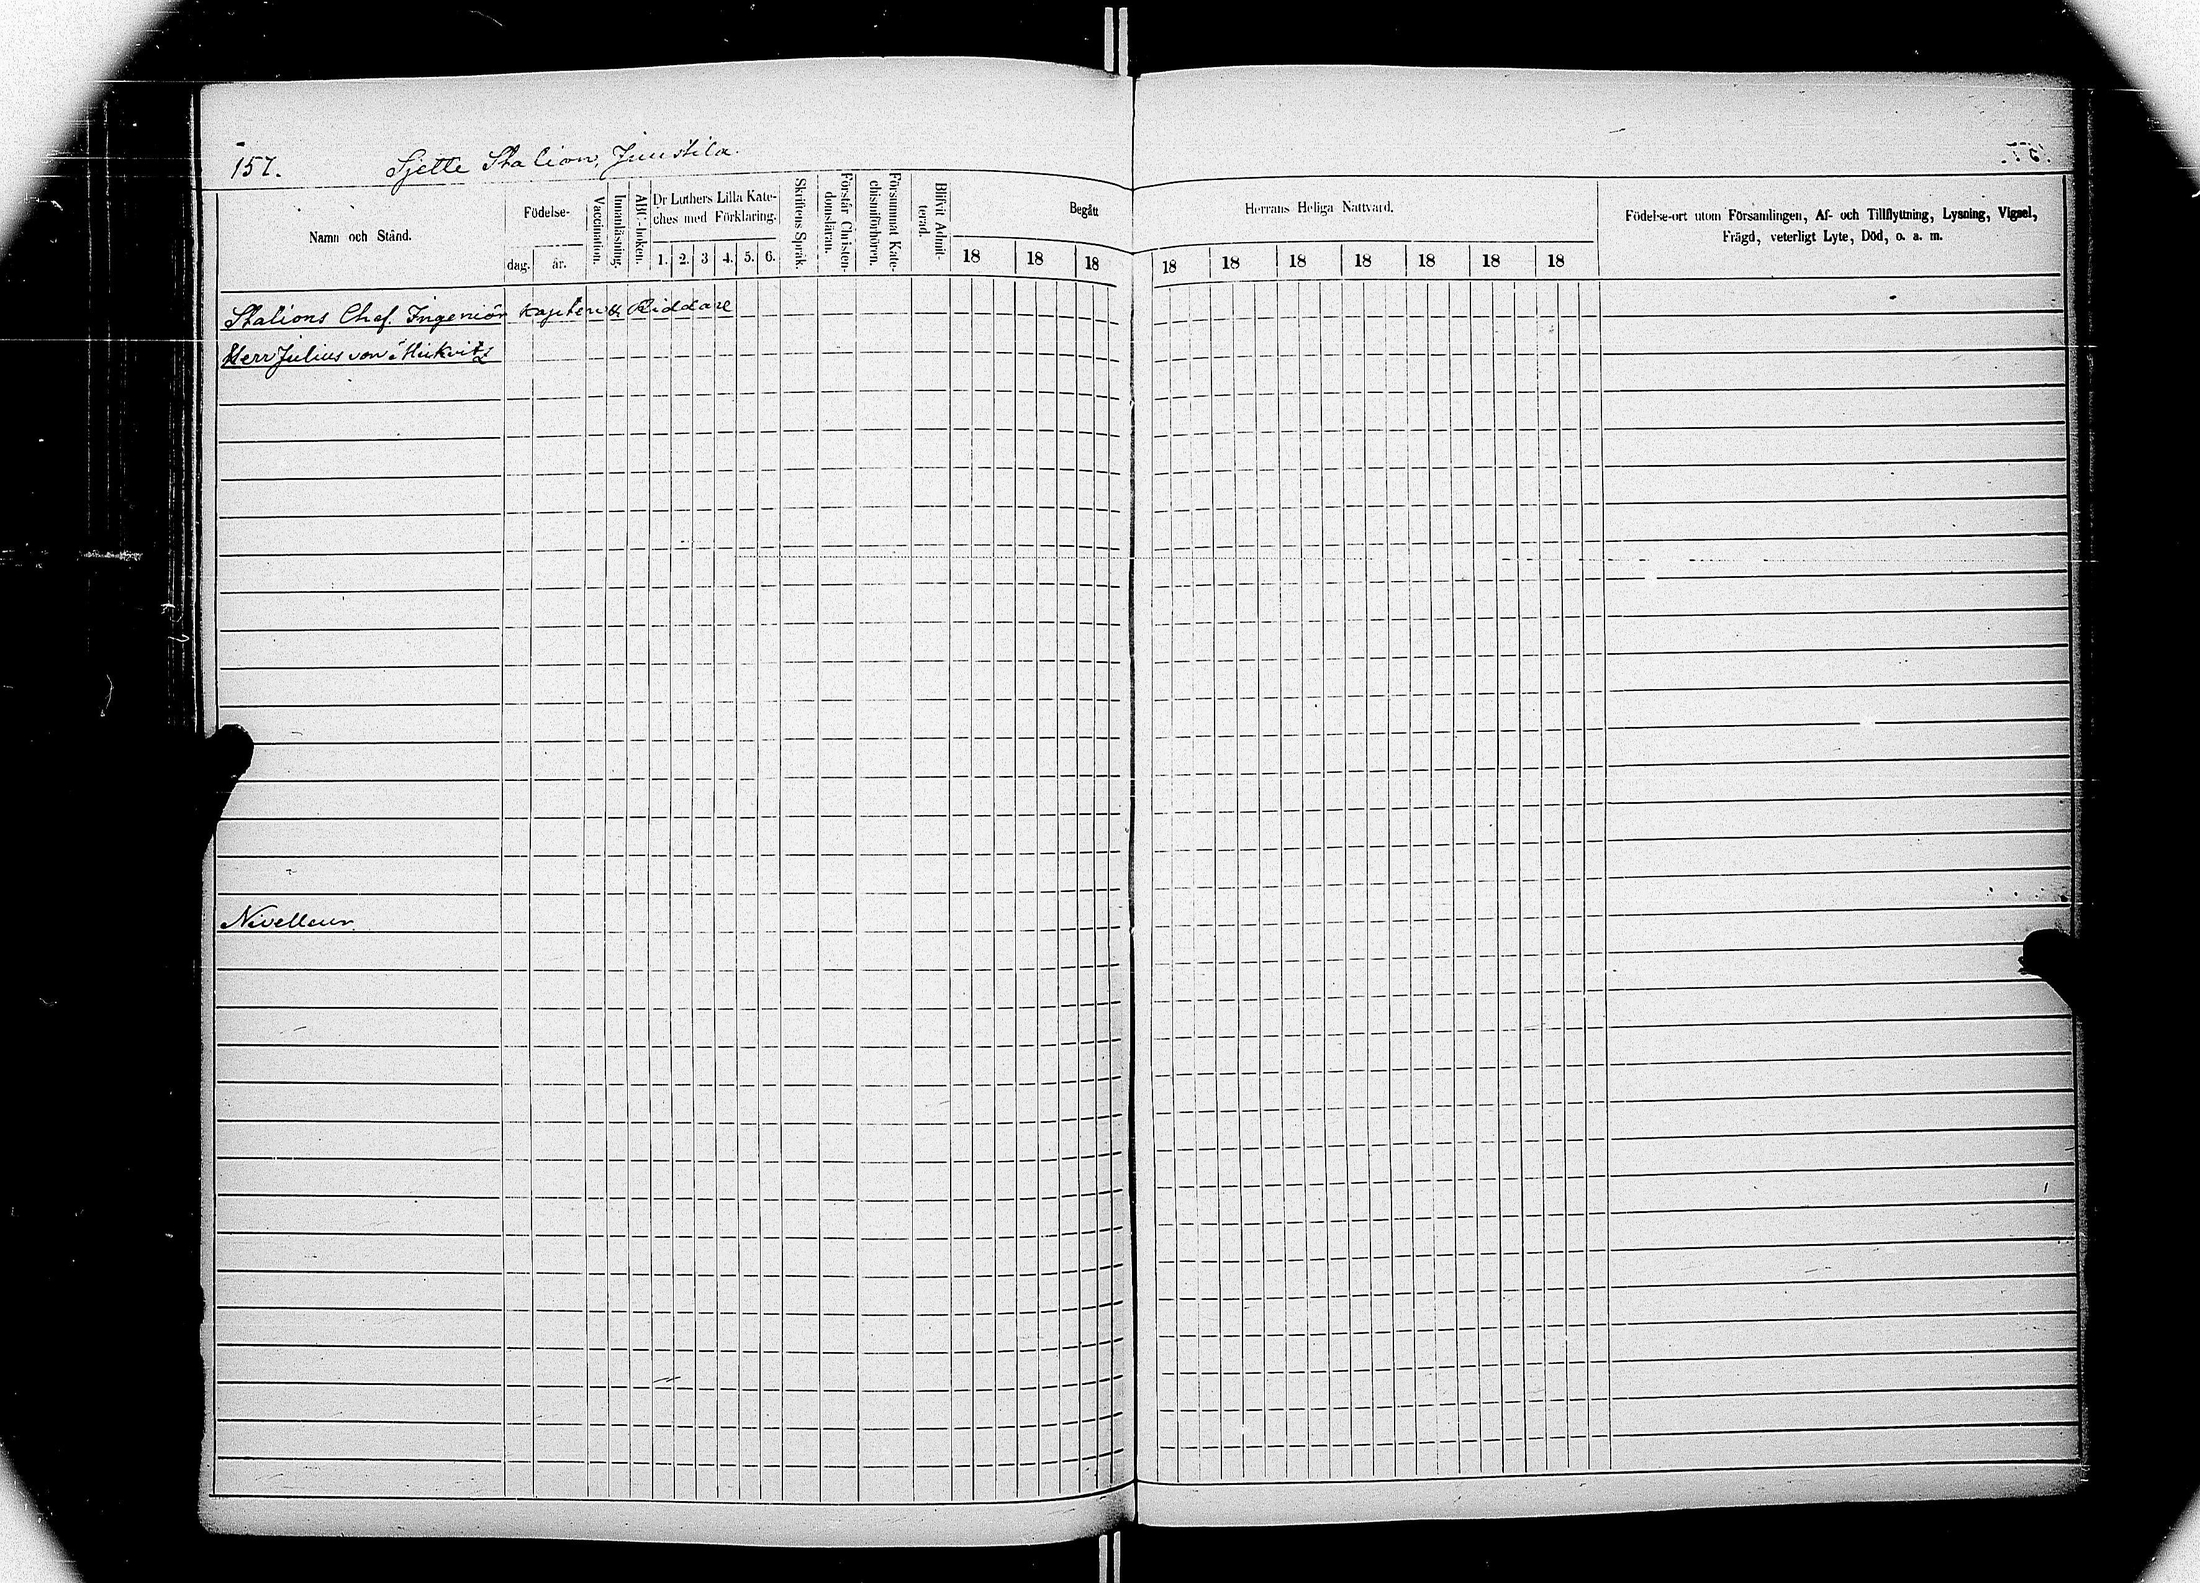 157.
Sjette Station, Juustila.
Namn och Stånd.
Födelse-
dag.
år.
Vaccination.
Innanläsning.
ABC-boken.
Dr Luthers Lilla Kate-
ches med Förklaring.
1. 2. 3 4. 5. 6.
Skriftens Språk.
Förstår Christen-
domsläran.
Försummat Kate-
chismiförhören.
Blifvit Admit-
terad.
Begått
18 18 18
Herrans Heliga Nattvard.
18 18 18 18 18 18 18
Födelse-ort utom Församlingen, Af- och Tillflyttning, Lysning, Vigsel,
Frägd, veterligt Lyte, Död, o. a. m.
Stations Chef. Ingeniör Kapten & Riddare
Herr Julius von Mickvitz
Nivelleur.